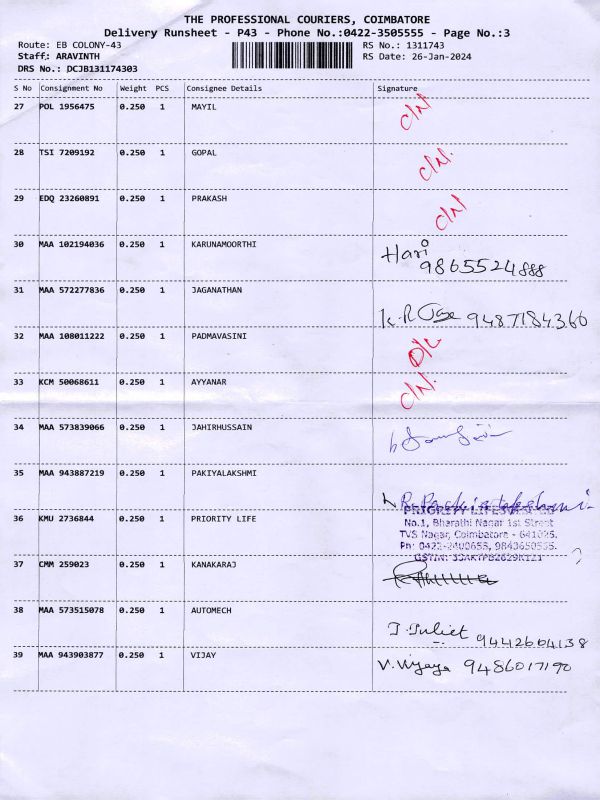 THE PROFESSIONAL COURIERS, COIMBATORE
Delivery Runsheet - P43 - Phone No.:0422-3505555 - Page No.:3
Route: EB COLONY-43 RS No.: 1311743
Staff: ARAVINTH RS Date: 26-Jan-2024
DRS No.: DCJB131174303
S No Consignment No Weight PCS Consignee Details Signature
27 POL 1956475 0.250 1 MAYIL C/N
28 TSI 7209192 0.250 1 GOPAL C/N.
29 EDQ 23260891 0.250 1 PRAKASH C/N
30 MAA 102194036 0.250 1 KARUNAMOORTHI Hari
9865524888
31 MAA 572277836 0.250 1 JAGANATHAN
K.R 9487184366
32 MAA 108011222 0.250 1 PADMAVASINI D/L
33 KCM 50068611 0.250 1 AYYANAR C/N.
34 MAA 573839066 0.250 1 JAHIRHUSSAIN
35 MAA 943887219 0.250 1 PAKIYALAKSHMI
36 KMU 2736844 0.250 1 PRIORITY LIFE
No.1, Bharathi Nagar 1st Street
TVS Nagar, Coimbatore - 641025.
Ph: 0422-2400655, 9843650555.
37 CMM 259023 0.250 1 KANAKARAJ
38 MAA 573515078 0.250 1 AUTOMECH
J. Juliet 9442604138
39 MAA 943903877 0.250 1 VIJAY V. Vijaya 9486017190